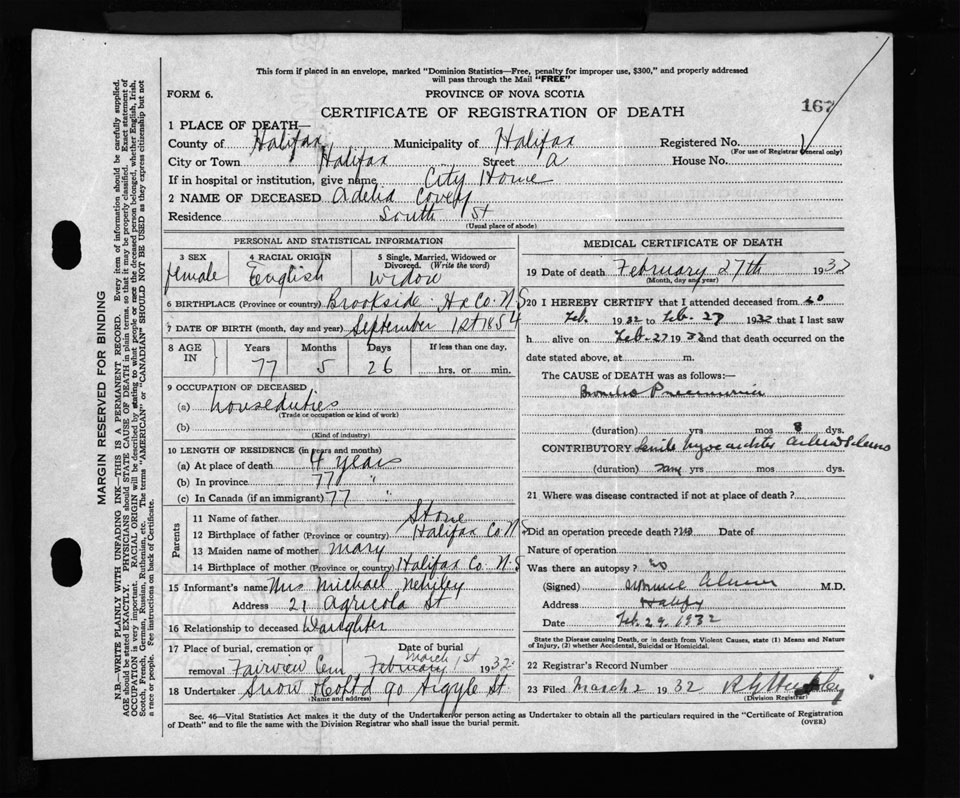 This form if placed in an envelope, marked "Dominion Statistics—Free, penalty for improper use, $300," and properly addressed
will pass through the Mail "FREE"
FORM 6.
PROVINCE OF NOVA SCOTIA
167
CERTIFICATE OF REGISTRATION OF DEATH
1 PLACE OF DEATH—
County of Halifax Municipality of Halifax Registered No.
(For use of Registrar General only)
City or Town Halifax Street A House No.
If in hospital or institution, give name City Home
2 NAME OF DECEASED Adelia Covey
Residence South St
(Usual place of abode)
PERSONAL AND STATISTICAL INFORMATION
3 SEX 4 RACIAL ORIGIN 5 Single, Married, Widowed or Divorced. (Write the word)
female English Widow
6 BIRTHPLACE (Province or country) Brookside Hx Co. N.S
7 DATE OF BIRTH (month, day and year) September 1st 1854
8 AGE IN Years Months Days If less than one day,
77 5 26 hrs. or min.
9 OCCUPATION OF DECEASED
(a) houseduties
(Trade or occupation or kind of work)
(b)
(Kind of industry)
10 LENGTH OF RESIDENCE (in years and months)
(a) At place of death 4 years
(b) In province 77 "
(c) In Canada (if an immigrant) 77 "
Parents
11 Name of father Stone
12 Birthplace of father (Province or country) Halifax Co N.S
13 Maiden name of mother Mary
14 Birthplace of mother (Province or country) Halifax Co. N.S
15 Informant's name Mrs Michael
Address 21 Agricola St
16 Relationship to deceased Daughter
17 Place of burial, cremation or Date of burial
March 1st
removal Fairview Cem February 1932
18 Undertaker Snow & Co Ltd 90 Argyle St.
(Name and address)
MEDICAL CERTIFICATE OF DEATH
19 Date of death February 27th 1932
(Month, day and year)
20 I HEREBY CERTIFY that I attended deceased from 20
Feb. 1932 to Feb. 27 1932 that I last saw
h alive on Feb. 27 1932 and that death occurred on the
date stated above, at m.
The CAUSE of DEATH was as follows:—
Broncho Pneumonia
(duration) yrs mos 8 dys.
CONTRIBUTORY Senile
(duration) yrs mos dys.
21 Where was disease contracted if not at place of death?
Did an operation precede death? no Date of
Nature of operation
Was there an autopsy? no
(Signed) M.D.
Address Halifax
Date Feb. 29. 1932
State the Disease causing Death, or in death from Violent Causes, state (1) Means and Nature
of Injury, (2) whether Accidental, Suicidal or Homicidal.
22 Registrar's Record Number
23 Filed March 2 1932
(Division Registrar)
Sec. 46—Vital Statistics Act makes it the duty of the Undertaker or person acting as Undertaker to obtain all the particulars required in the "Certificate of Registration
of Death" and to file the same with the Division Registrar who shall issue the burial permit.
(OVER)
MARGIN RESERVED FOR BINDING
N.B.—WRITE PLAINLY WITH UNFADING INK—THIS IS A PERMANENT RECORD. Every item of information should be carefully supplied.
AGE should be stated EXACTLY. PHYSICIANS should STATE CAUSE OF DEATH in plain terms, so that it may be properly classified. Exact statement of
OCCUPATION is very important. RACIAL ORIGIN will be described by stating to what people or race the deceased person belonged, whether English, Irish,
Scotch, French, German, Russian, Ruthenian, etc. The terms "AMERICAN" or "CANADIAN" SHOULD NOT BE USED as they express citizenship but not
a race or people. See instructions on back of Certificate.